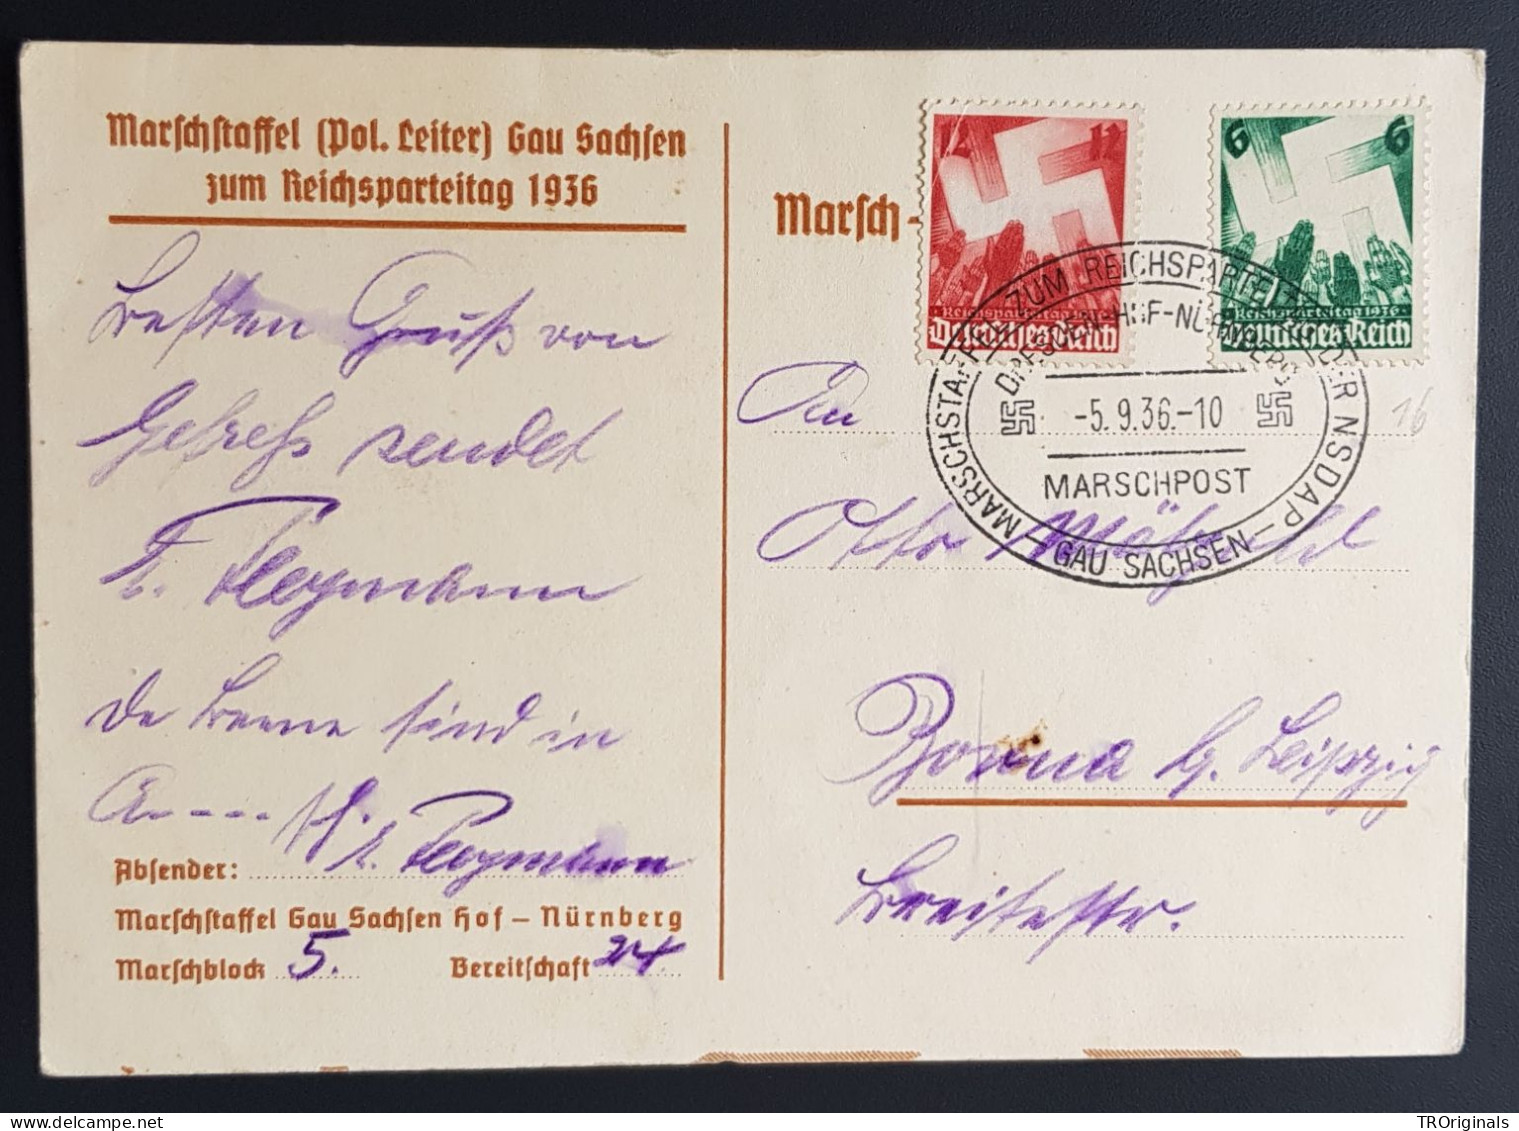 Marschstaffel (Pol. Leiter) Gau Sachsen
zum Reichsparteitag 1936
Besten Gruß von
Gefrees sendet
Heymann
die Beene sind in
A....
Absender: Heymann
Marschstaffel Gau Sachsen Hof – Nürnberg
Marschblock 5.
Bereitschaft 24
Marsch-
12 12
Reichsparteitag 1936
Deutsches Reich
6 6
Reichsparteitag 1936
Deutsches Reich
MARSCHSTAFFEL ZUM REICHSPARTEITAG DER NSDAP –
DRESDEN-HOF-NÜRNBERG
-5.9.36.-10
MARSCHPOST
– GAU SACHSEN –
16
An
Otto
Borna b. Leipzig
Breitestr.
TROriginals